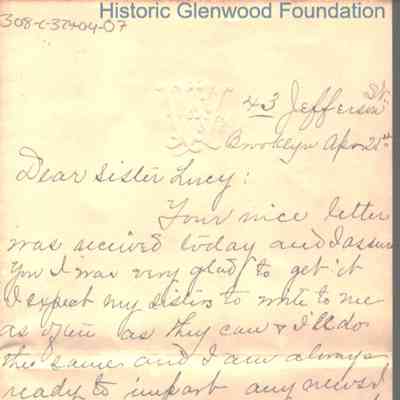 Historic Glenwood Foundation
43 Jefferson St.
Brooklyn Apr 25th
Dear Sister Lucy:
Your nice letter
was received today and I assure
you I was very glad to get it
I expect my sisters to write to me
as often as they can & I'll do
the same and I am always
ready to impart any news I